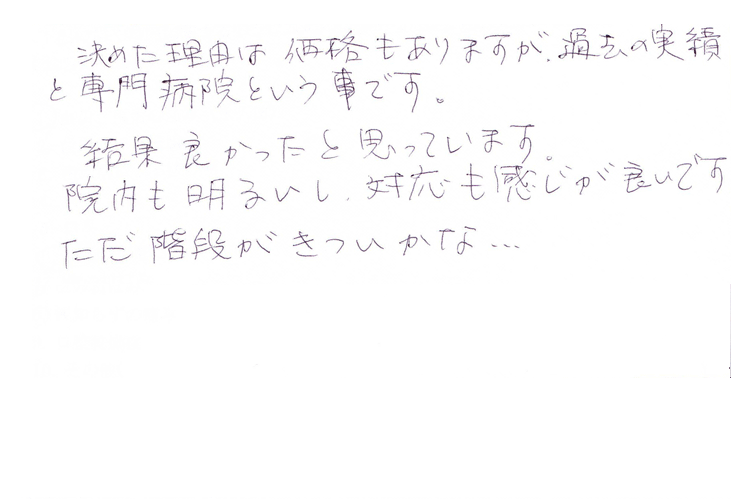 決めた理由は価格もありますが、過去の実績
と専門病院という事です。
結果良かったと思っています。
院内も明るいし、対応も感じが良いです
ただ階段がきついかな…